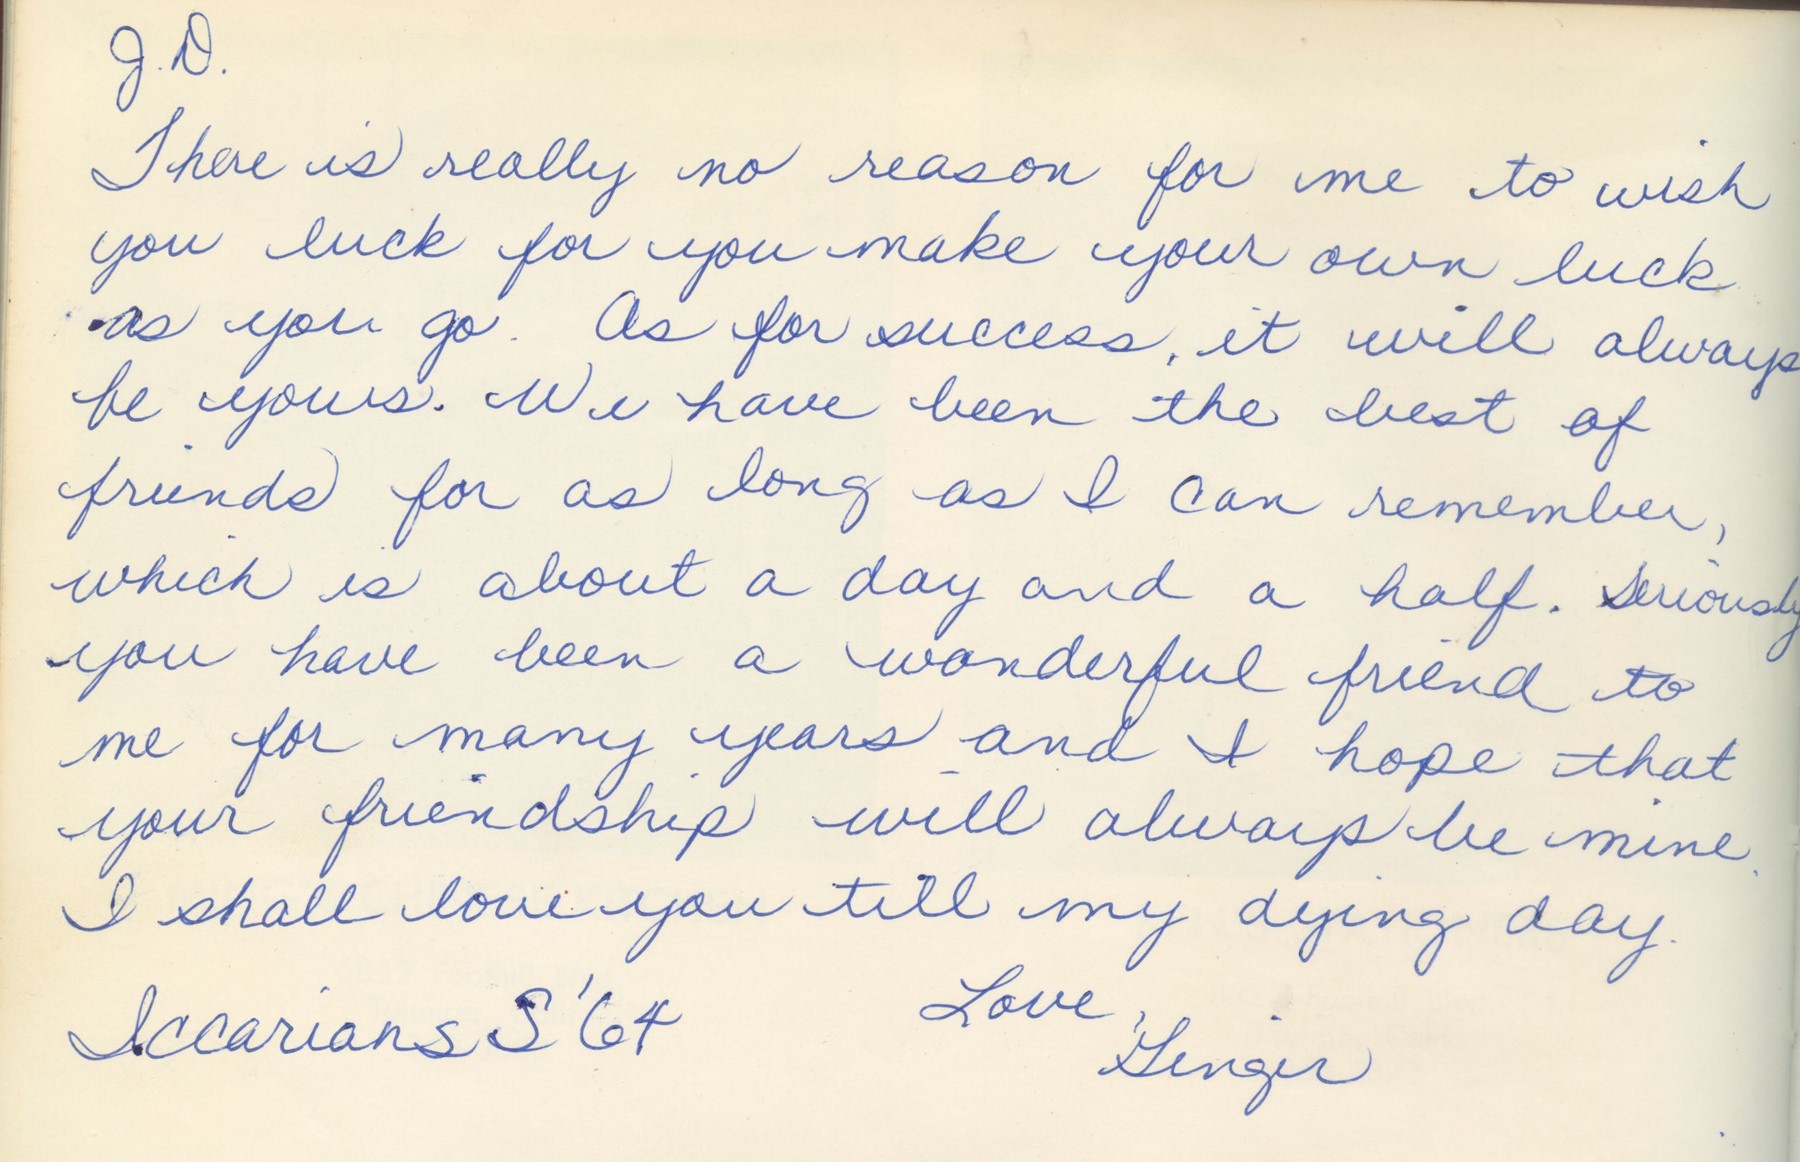 J.D.
There is really no reason for me to wish
you luck for you make your own luck
as you go. As for success, it will always
be yours. We have been the best of
friends for as long as I can remember,
which is about a day and a half. Seriously
you have been a wonderful friend to
me for many years and I hope that
your friendship will always be mine.
I shall love you till my dying day.
Love,
Iccarians S'64
Ginger